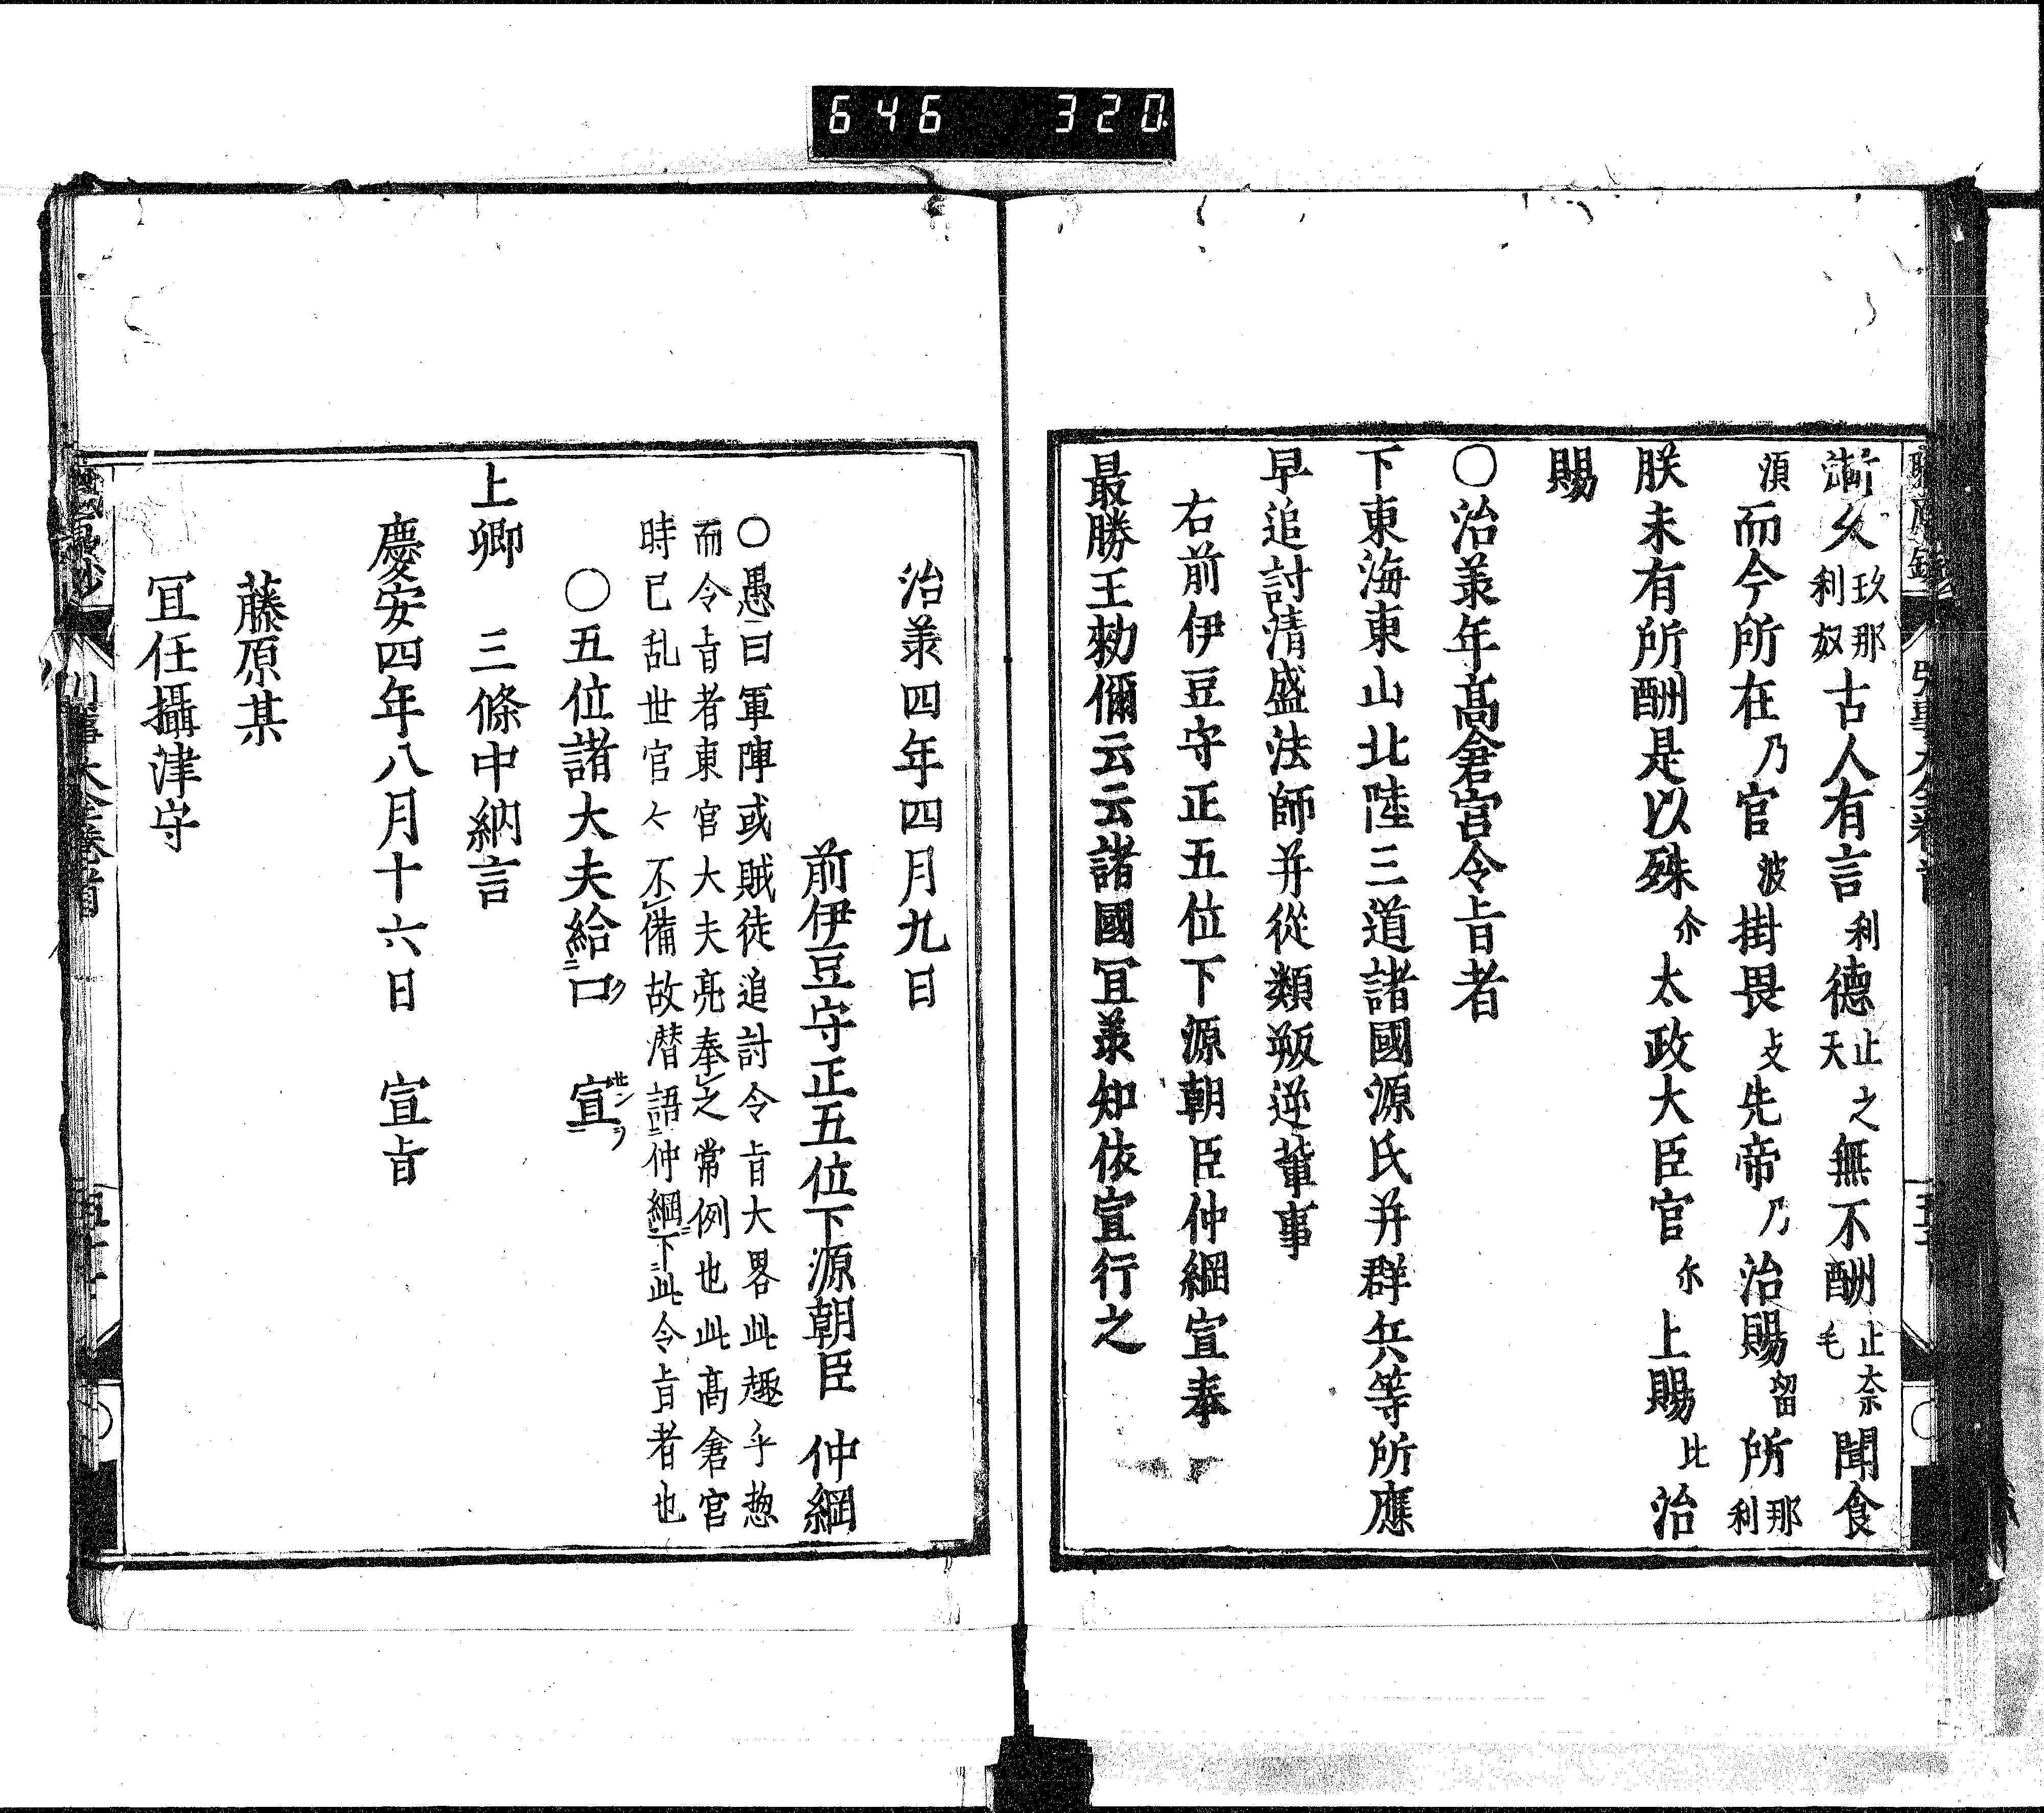 646 320
漸久玖那利奴古人有言利德止之天無不酬止奈毛聞食
須而今所在乃官波掛畏支先帝乃治賜留所那利
朕未有所酬是以殊尒太政大臣官尒上賜比治
賜
〇治羕年高倉宮令旨者
下東海東山北陸三道諸國源氏并群兵等所應
早追討清盛法師并從類叛逆輩事
右前伊豆守正五位下源朝臣仲綱宣奉
最勝王勅偁云云諸國冝羕知依宣行之
治羕四年四月九日
前伊豆守正五位下源朝臣 仲綱
〇愚曰軍陣或賊徒追討令旨大畧此趣乎惣
而令旨者東宮大夫亮奉之常例也此高倉宮
時已乱世官々不備故潛語仲綱下此令旨者也
〇五位諸大夫給口宣
上卿 三條中納言
慶安四年八月十六日 宣旨
藤原某
冝任攝津守